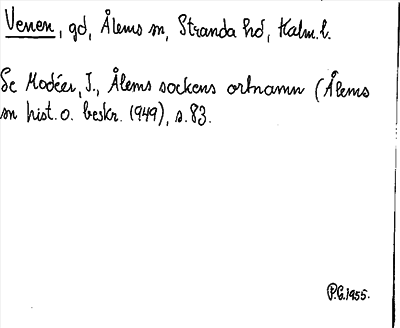 Venen, gd, Ålems sn, Stranda hd, Kalm. l.
Se Modéer, I., Ålems sockens ortnamn (Ålems
sn hist. o. beskr. 1949), s. 83.
P.G. 1955.